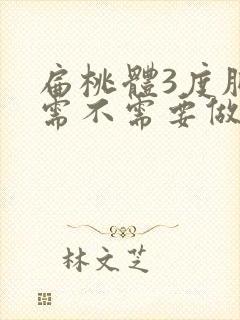 扁桃體3度
需不需要做
林文芝